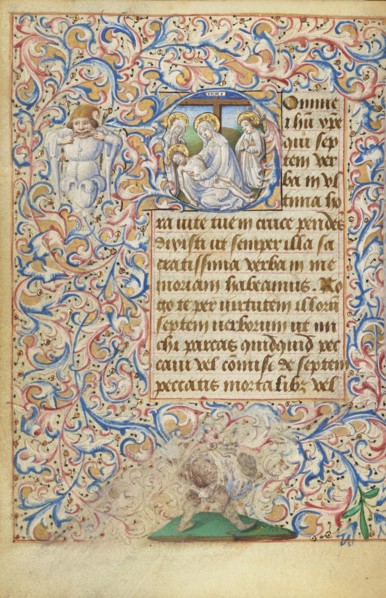 INRI
Domine
ihu xpe
qui sep
tem ver
ba in vl
tima ho
ra uite tue in cruce pendēs
dixisti ut semper illa sa
cratissima verba in me
moriam habeamus. Ro
go te per uirtutem illorū
septem uerborum ut mi
chi parcas quidquid pec
caui vel comisi de septem
peccatis mortalibꝫ vel